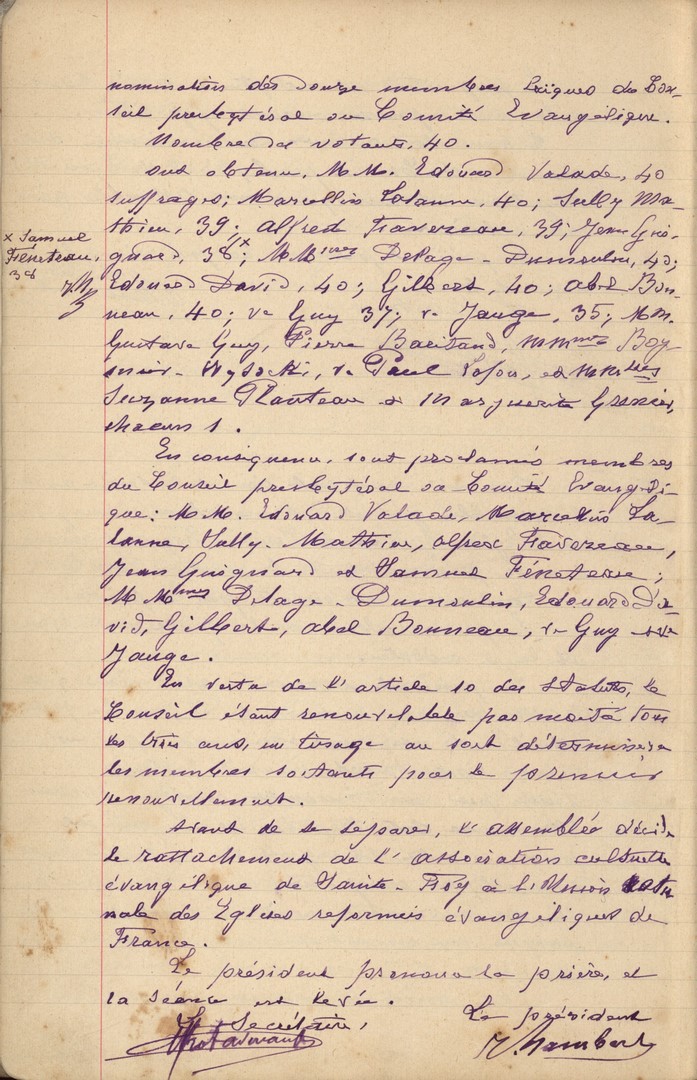 nomination des douze membres laïques du Con-
seil presbytéral ou Comité Evangélique.
Nombre de votants, 40.
Ont obtenu, MM. Edouard Valade, 40
suffrages; Marcellin Lalanne, 40; Sully Ma-
thieu, 39; Alfred Favereau, 39; Jean Gui-
gnard, 38 x; MMmes Delage-Dumoulin, 40;
x Samuel
Féneteau,
38
Edouard David, 40; Gilbert, 40; Abel Bon-
neau, 40; ve Guy 37; ve Jauge, 35; MM.
Gustave Guy, Pierre MMmes
ve Paul et MMlles
Suzanne Planteau et Marguerite Grenier,
chacun 1.
En conséquence, sont proclamés membres
du Conseil presbytéral ou Comité Evangéli-
que: MM. Edouard Valade, Marcellin La-
lanne, Sully-Mathieu, Alfred Favereau,
Jean Guignard et Samuel Féneteau;
MMmes Delage-Dumoulin, Edouard Da-
vid, Gilbert, Abel Bonneau, ve Guy et ve
Jauge.
En vertu de l'article 10 des Statuts, le
Conseil étant renouvelable par moitié tous
les trois ans, un tirage au sort déterminera
les membres sortants pour le premier
renouvellement.
Avant de se séparer, l'assemblée décide
le rattachement de l'association cultuelle
évangélique de Sainte-Foy à l'Union natio
nale des Eglises réformées évangéliques de
France.
Le président prononce la prière, et
la séance est levée.
Le Secrétaire,
Le président